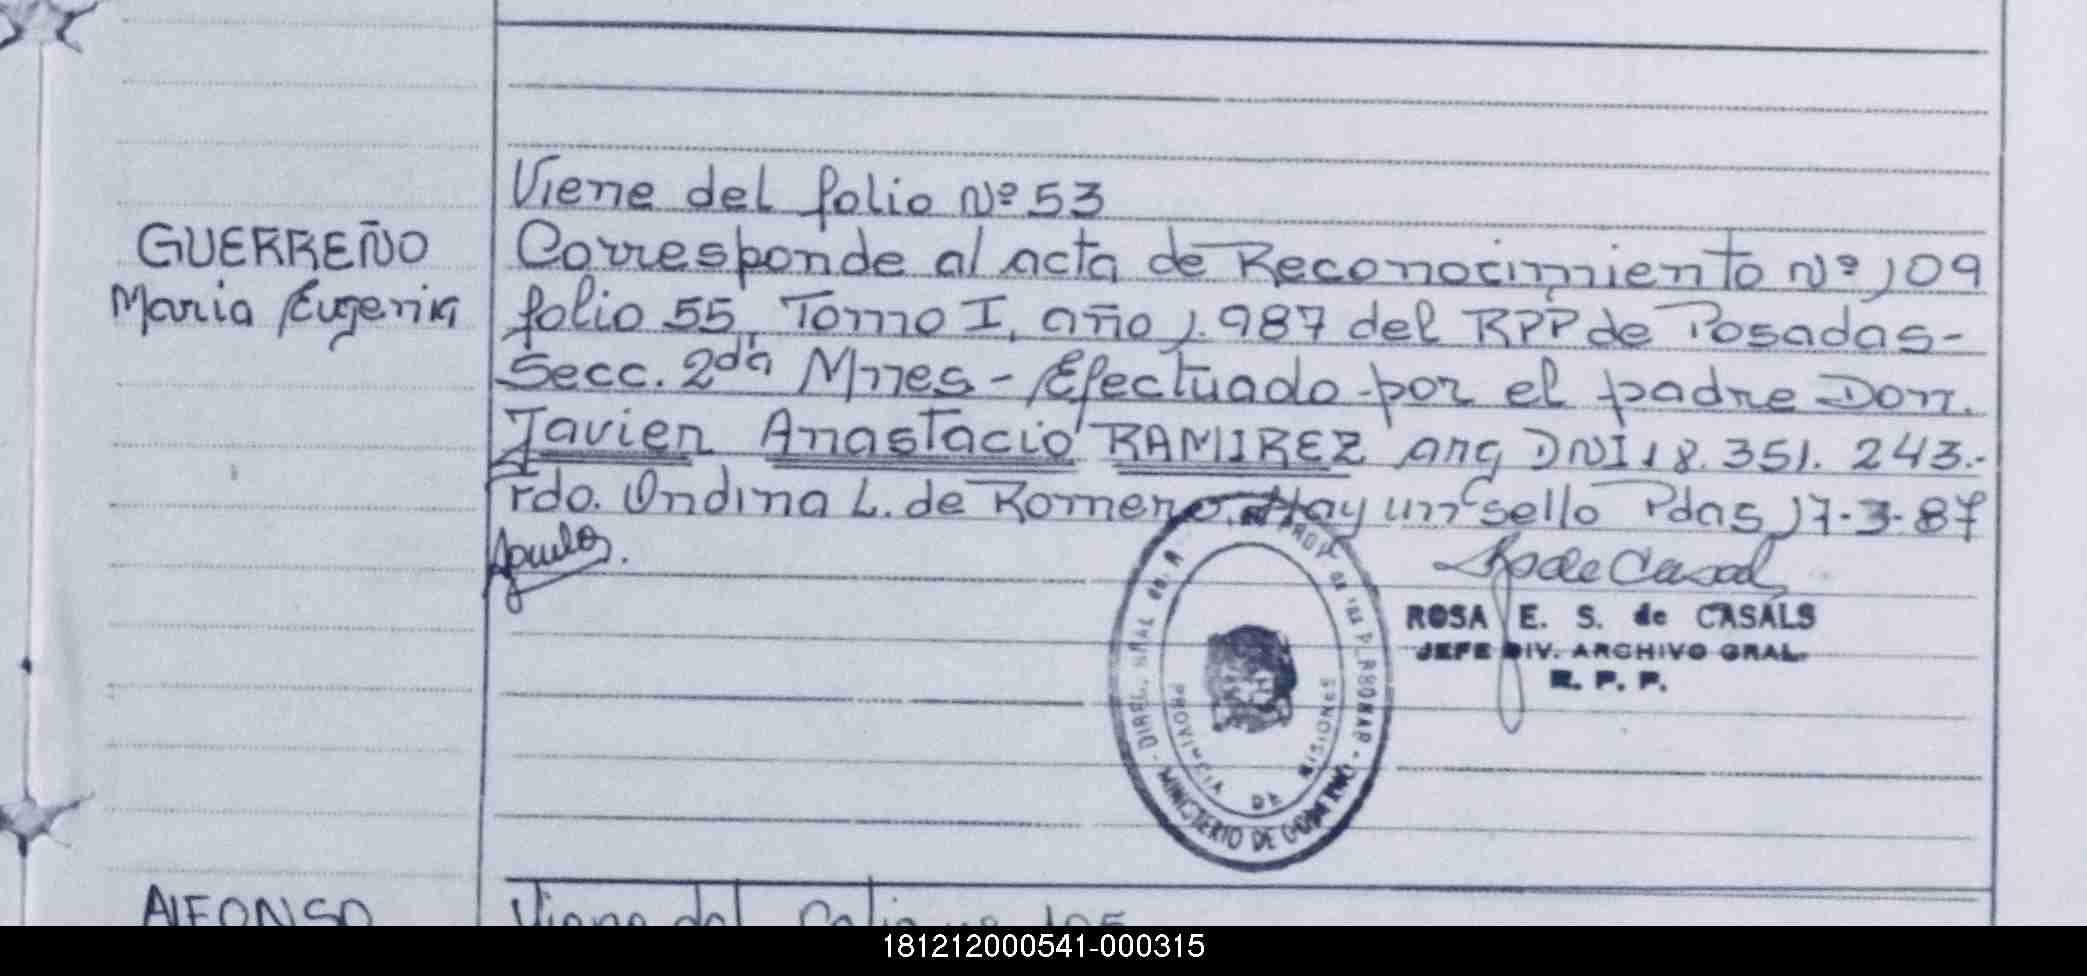 Viene del folio Nº 53
GUERREÑO
Maria Eugenia
Corresponde al acta de Reconocimiento Nº 109
folio 55, Tomo I, año 1.987 del RPP de Posadas-
Secc. 2da Mnes - Efectuado por el padre Don.
Javier Anastacio RAMIREZ arg DNI 18.351.243.-
Fdo. Ondina L. de Romero. Hay un sello Pdas 17-3-87
ROSA E. S. de CASALS
JEFE DIV. ARCHIVO GRAL.
R. P. P.
PROVINCIA DE MISIONES
MINISTERIO DE GOBIERNO
ALFONSO
Viene del folio nº 105
181212000541-000315